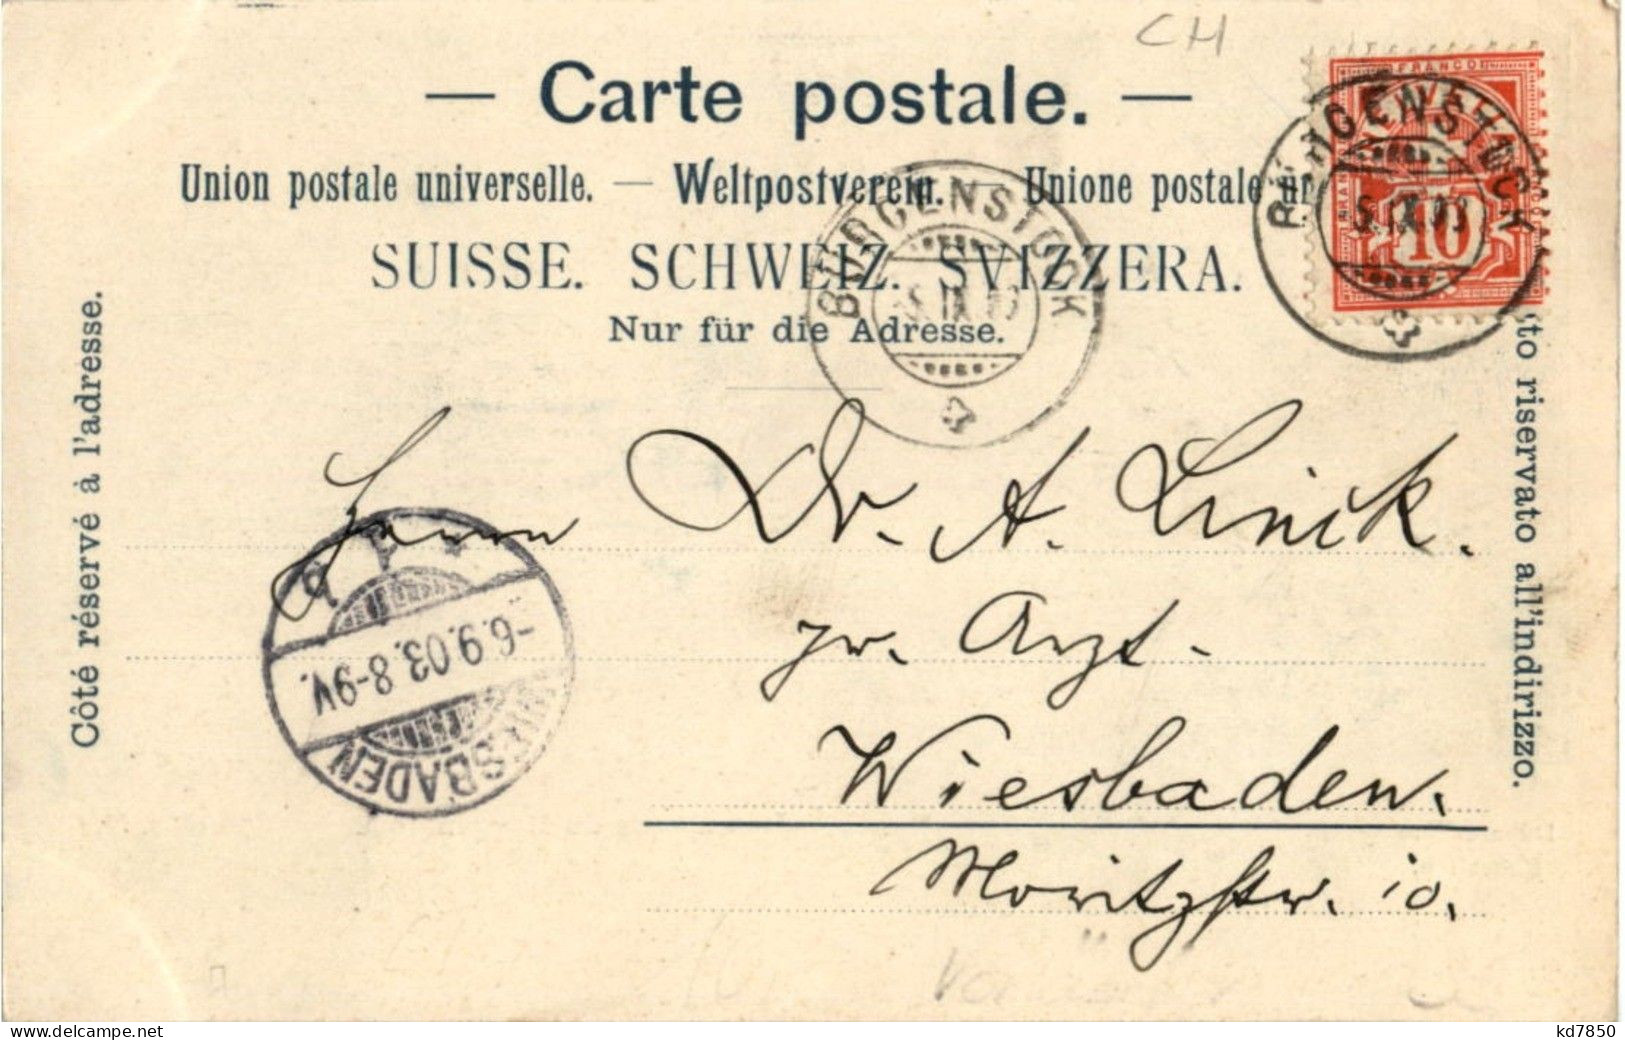 CH
— Carte postale. —
Union postale universelle. — Weltpostverein. — Unione postale
SUISSE. SCHWEIZ. SVIZZERA.
Nur für die Adresse.
Côté réservé à l'adresse.
riservato all'indirizzo.
FRANCO
10
BÜRGENSTOCK
5.IX.03
BÜRGENSTOCK
5.IX.03
Herrn Dr. A. Linck.
pr. Arzt.
Wiesbaden.
Moritzstr. 10.
WIESBADEN
-6.9.03.8-9V.
www.delcampe.net
kd7850